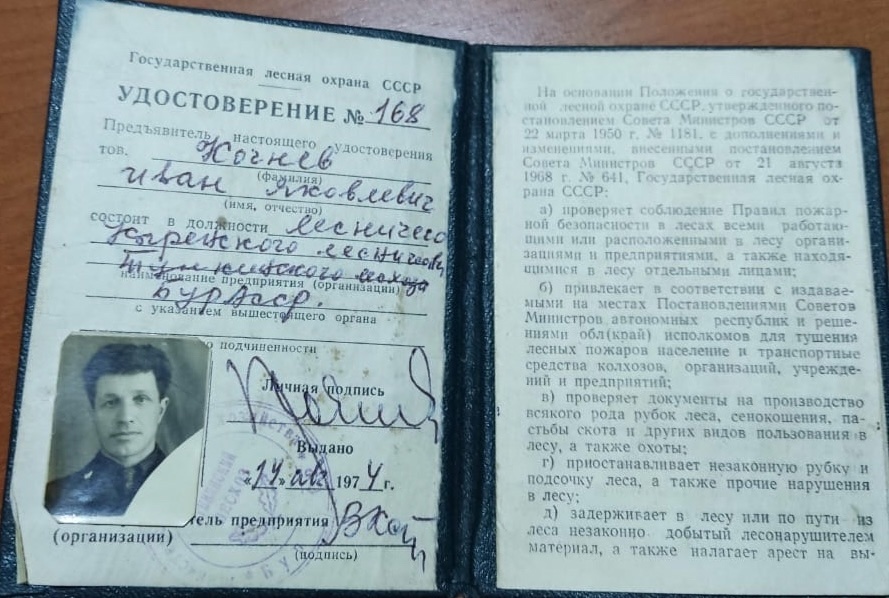 Государственная лесная охрана СССР
УДОСТОВЕРЕНИЕ № 168
Предъявитель настоящего удостоверения
тов. Кочнев
(фамилия)
Иван Яковлевич
(имя, отчество)
состоит в должности лесничего
Кыренского лесничества
Тункинского лесхоза
наименование предприятия (организации)
БурАССР.
с указанием вышестоящего органа
по подчиненности
Личная подпись
Выдано
«14» авг 1974 г.
тель предприятия
(организации)
(подпись)
На основании Положения о государствен-
ной лесной охране СССР, утвержденного по-
становлением Совета Министров СССР от
22 марта 1950 г. № 1181, с дополнениями и
изменениями, внесенными постановлением
Совета Министров СССР от 21 августа
1968 г. № 641, Государственная лесная ох-
рана СССР:
а) проверяет соблюдение Правил пожар-
ной безопасности в лесах всеми работаю-
щими или расположенными в лесу органи-
зациями и предприятиями, а также находя-
щимися в лесу отдельными лицами;
б) привлекает в соответствии с издавае-
мыми на местах Постановлениями Советов
Министров автономных республик и реше-
ниями обл(край) исполкомов для тушения
лесных пожаров население и транспортные
средства колхозов, организаций, учрежде-
ний и предприятий;
в) проверяет документы на производство
всякого рода рубок леса, сенокошения, па-
стьбы скота и других видов пользования в
лесу, а также охоты;
г) приостанавливает незаконную рубку и
подсочку леса, а также прочие нарушения
в лесу;
д) задерживает в лесу или по пути из
леса незаконно добытый лесонарушителем
материал, а также налагает арест на вы-